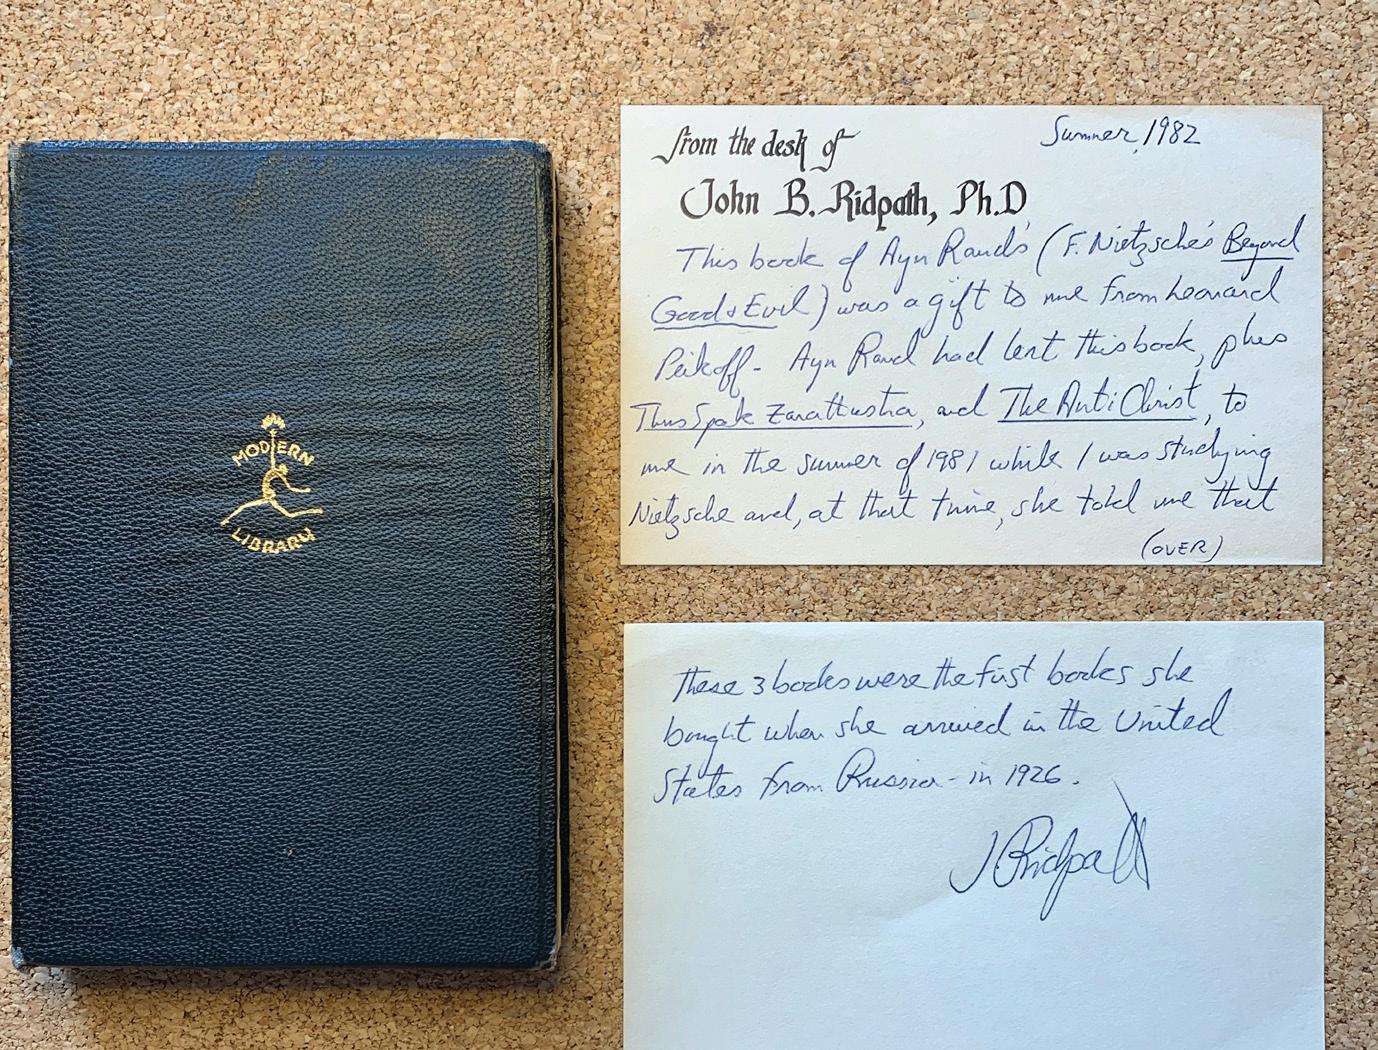 MODERN
LIBRARY
from the desk of
Summer, 1982
John B. Ridpath, Ph.D
This book of Ayn Rand's (F. Nietzsche's Beyond
Good & Evil) was a gift to me from Leonard
Peikoff. Ayn Rand had lent this book, plus
Thus Spak Zarathustra, and The AntiChrist, to
me in the summer of 1981 while I was studying
Nietzsche and, at that time, she told me that
(OVER)
These 3 books were the first books she
bought when she arrived in the United
States from Russia - in 1926.
J Ridpath